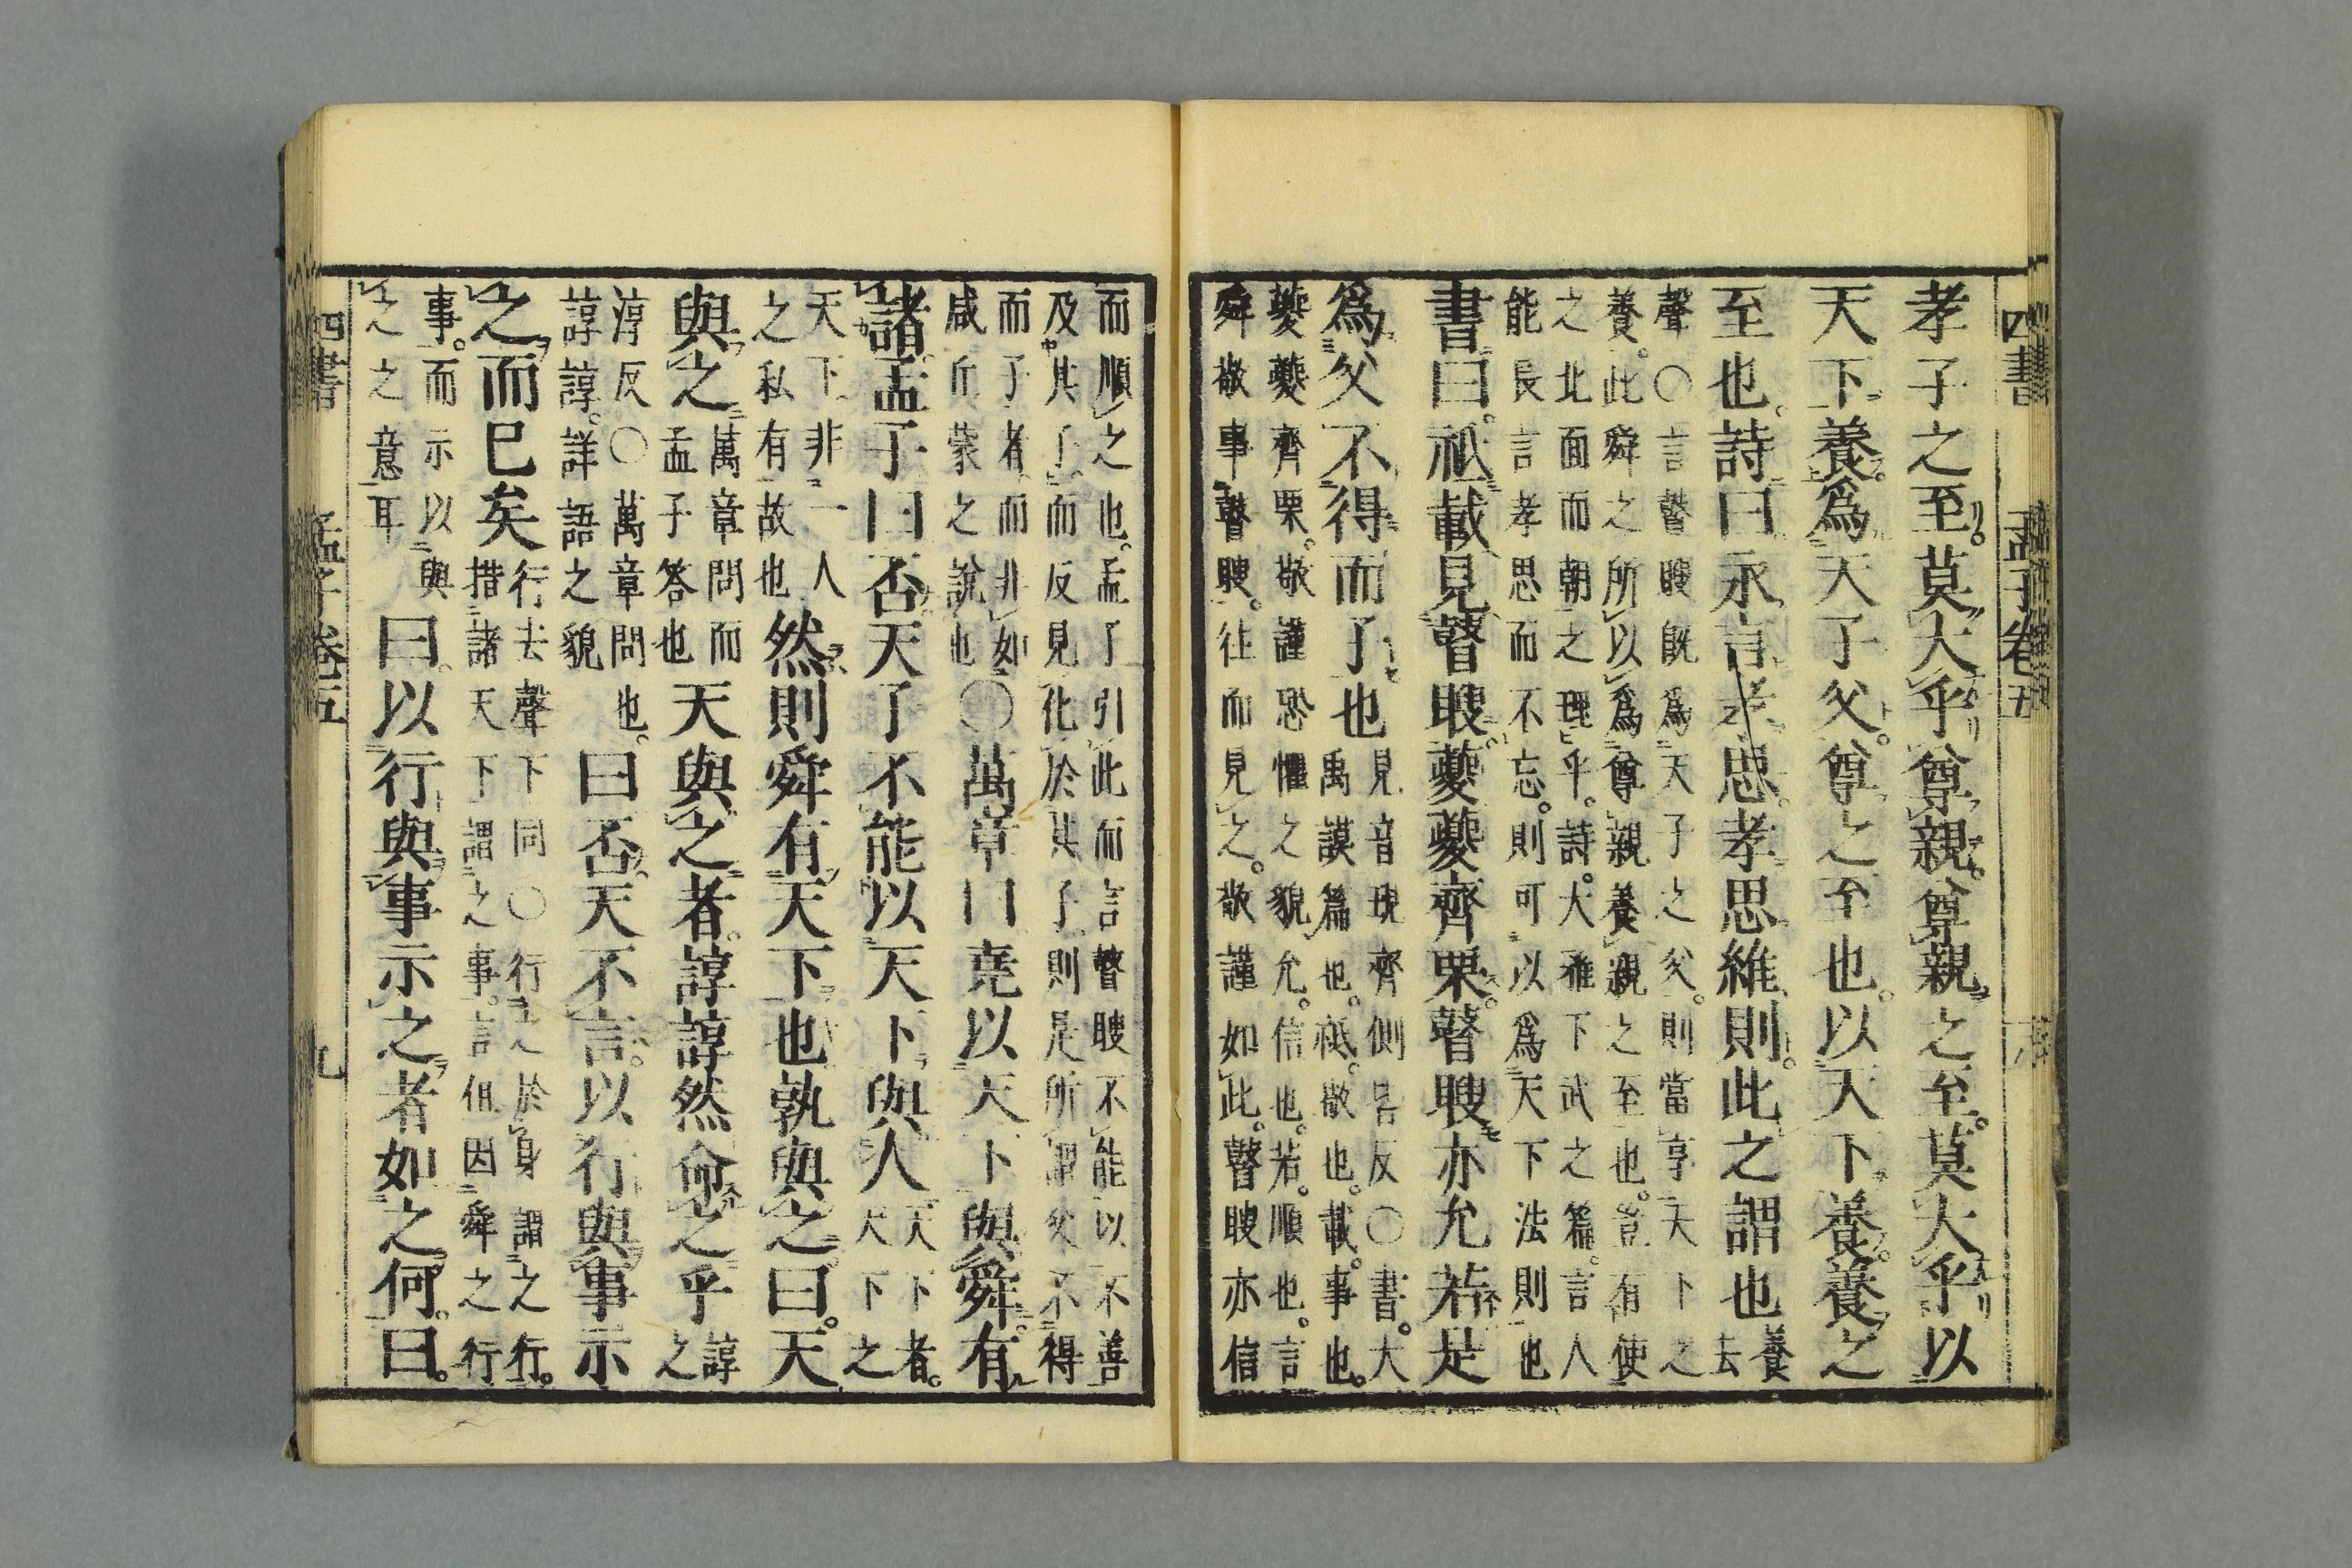 四書 孟子卷五
孝子之至。莫大乎尊親。尊親之至。莫大乎以
天下養。爲天子父。尊之至也。以天下養。養之
至也。詩曰永言孝思。孝思維則。此之謂也養
去
聲○言瞽瞍既爲天子之父。則當享天下之
養。此舜之所以爲尊親養親之至也。豈有使
之北面而朝之理乎。詩。大雅下武之篇。言人
能長言孝思而不忘。則可以爲天下法則也
書曰。祗載見瞽瞍。夔夔齊栗。瞽瞍亦允若。是
爲父不得而子也見音現齊側皆反○書。大
禹謨篇也。祗。敬也。載。事也。
夔夔齊栗。敬謹恐懼之貌允。信也。若。順也。言
舜敬事瞽瞍。往而見之。敬謹如此。瞽瞍亦信
而順之也。孟子引此而言瞽瞍不能以不善
及其子。而反見化於其子。則是所謂父不得
而子者。而非如
咸丘蒙之說也○萬章曰堯以天下與舜。有
諸。孟子曰否天子不能以天下與人天下者。
天下之
天下。非一人
之私有故也然則舜有天下也孰與之。曰。天
與之。萬章問而
孟子答也天與之者。諄諄然命之乎諄
之
淳反○萬章問也。
諄諄。詳語之貌曰否。天不言。以行與事示
之而已矣行去聲下同○行之於身謂之行。
措諸天下謂之事。言但因舜之行
事。而示以與
之之意耳曰。以行與事示之者如之何。曰。
四書 孟子卷五 九